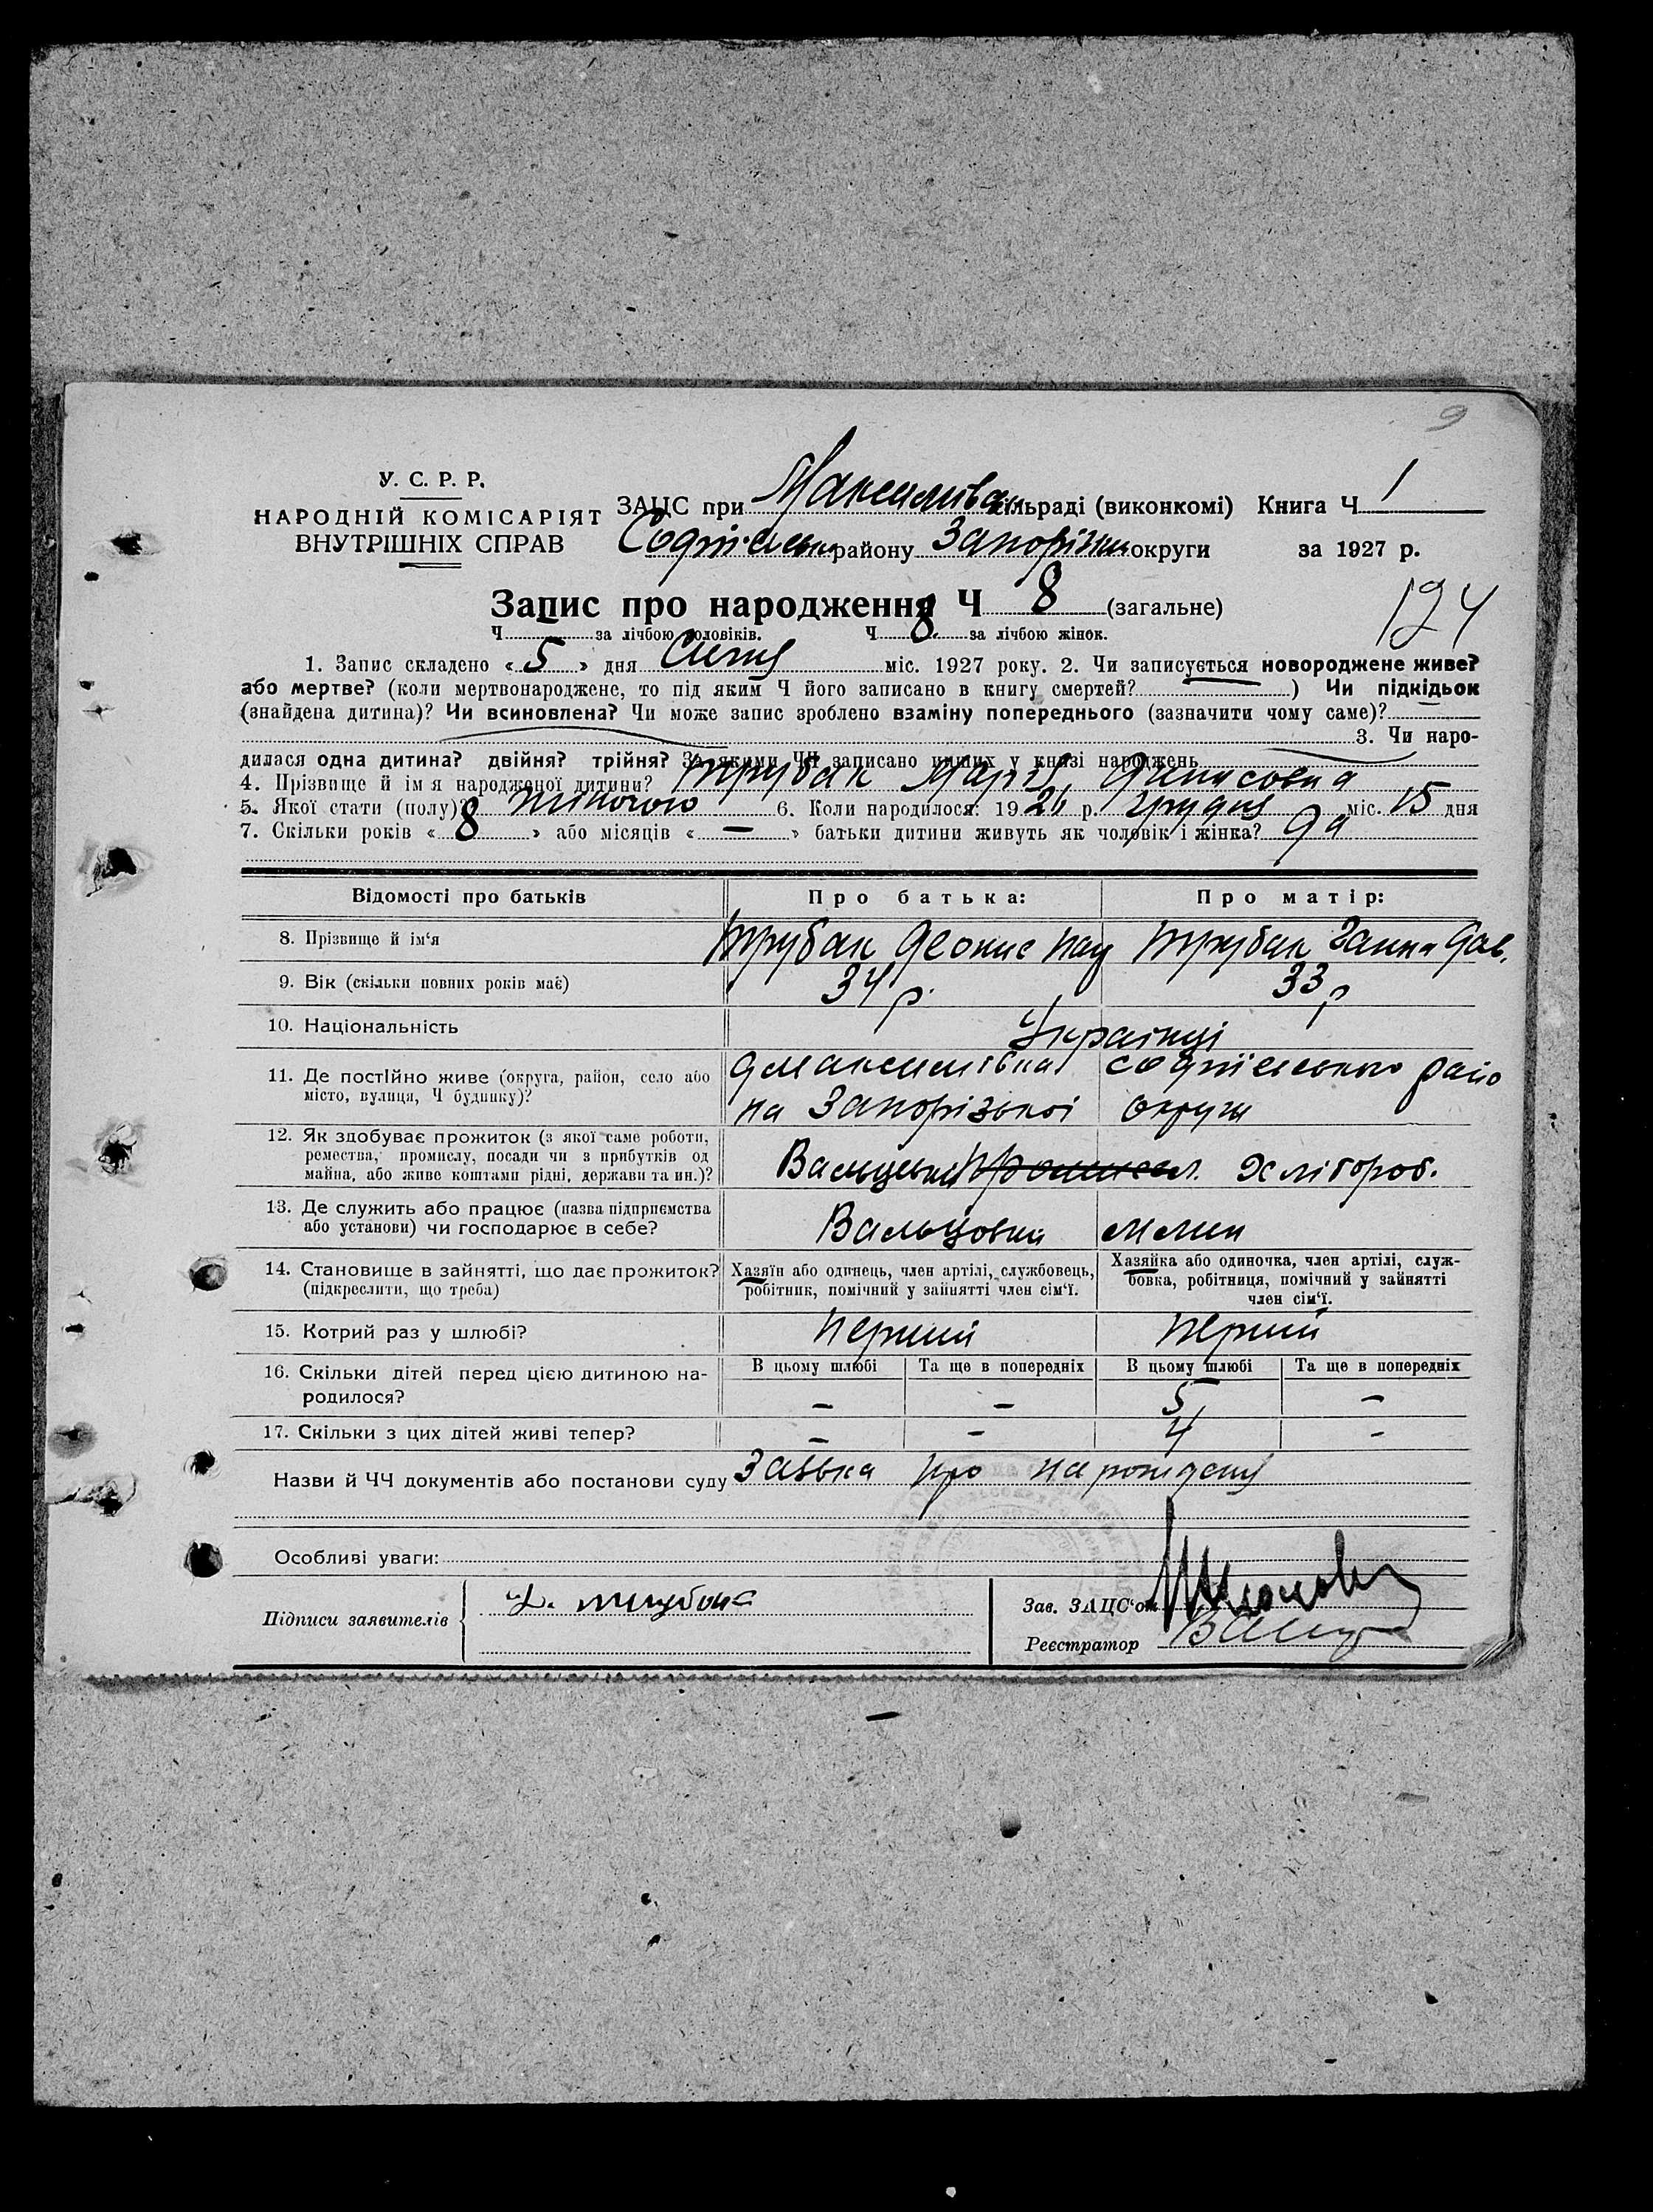 9
У. С. Р. Р.
НАРОДНІЙ КОМІСАРІЯТ
ВНУТРІШНІХ СПРАВ
ЗАЦС при Максимівск сільраді (виконкомі) Книга Ч 1
району Запорізьк округи за 1927 р.
Запис про народження Ч 8 (загальне)
124
Ч за лічбою чоловіків. Ч 8. за лічбою жінок.
1. Запис складено « 5 » дня Січня міс. 1927 року. 2. Чи записується новороджене живе?
або мертве? (коли мертвонароджене, то під яким Ч його записано в книгу смертей? ) Чи підкідьок
(знайдена дитина)? Чи всиновлена? Чи може запис зроблено взаміну попереднього (зазначити чому саме)?
3. Чи наро-
дилася одна дитина? двійня? трійня? За якими ЧЧ записано инших у книзі народжень
4. Прізвище й ім я народженої дитини? Трубак Марія Денисовна
5. Якої стати (полу)? жіночою 6. Коли народилося: 1926 р. грудня міс. 15 дня
7. Скільки років « 8 » або місяців « — » батьки дитини живуть як чоловік і жінка? Да
Відомості про батьків Про батька: Про матір:
8. Прізвище й ім‘я Трубак Деонис Пау Трубак Ганна Дав.
9. Вік (скільки повних років має) 34 р. 33 р
10. Національність Українці
11. Де постійно живе (округа, район, село або Дмаксимівка Софіївського райо
місто, вулиця, Ч будинку)? на Запорізької округи
12. Як здобуває прожиток (з якої саме роботи,
ремества, промислу, посади чи з прибутків од
майна, або живе коштами рідні, держави та ин.)? хлібороб.
13. Де служить або працює (назва підприємства
або установи) чи господарює в себе? Вальцовий млин
14. Становище в зайнятті, що дає прожиток? Хазяїн або одинець, член артілі, службовець, Хазяйка або одиночка, член артілі, служ-
(підкреслити, що треба) робітник, помічний у зайнятті член сім‘ї. бовка, робітниця, помічний у зайнятті
член сім‘ї.
15. Котрий раз у шлюбі? перший перший
16. Скільки дітей перед цією дитиною на- В цьому шлюбі Та ще в попередніх В цьому шлюбі Та ще в попередніх
родилося? – – 5 –
17. Скільки з цих дітей живі тепер? – – 4 -
Назви й ЧЧ документів або постанови суду Заявка про народжену
Особливі уваги:
Підписи заявителів Д. трубака
Зав. ЗАЦС‘ом
Реєстратор